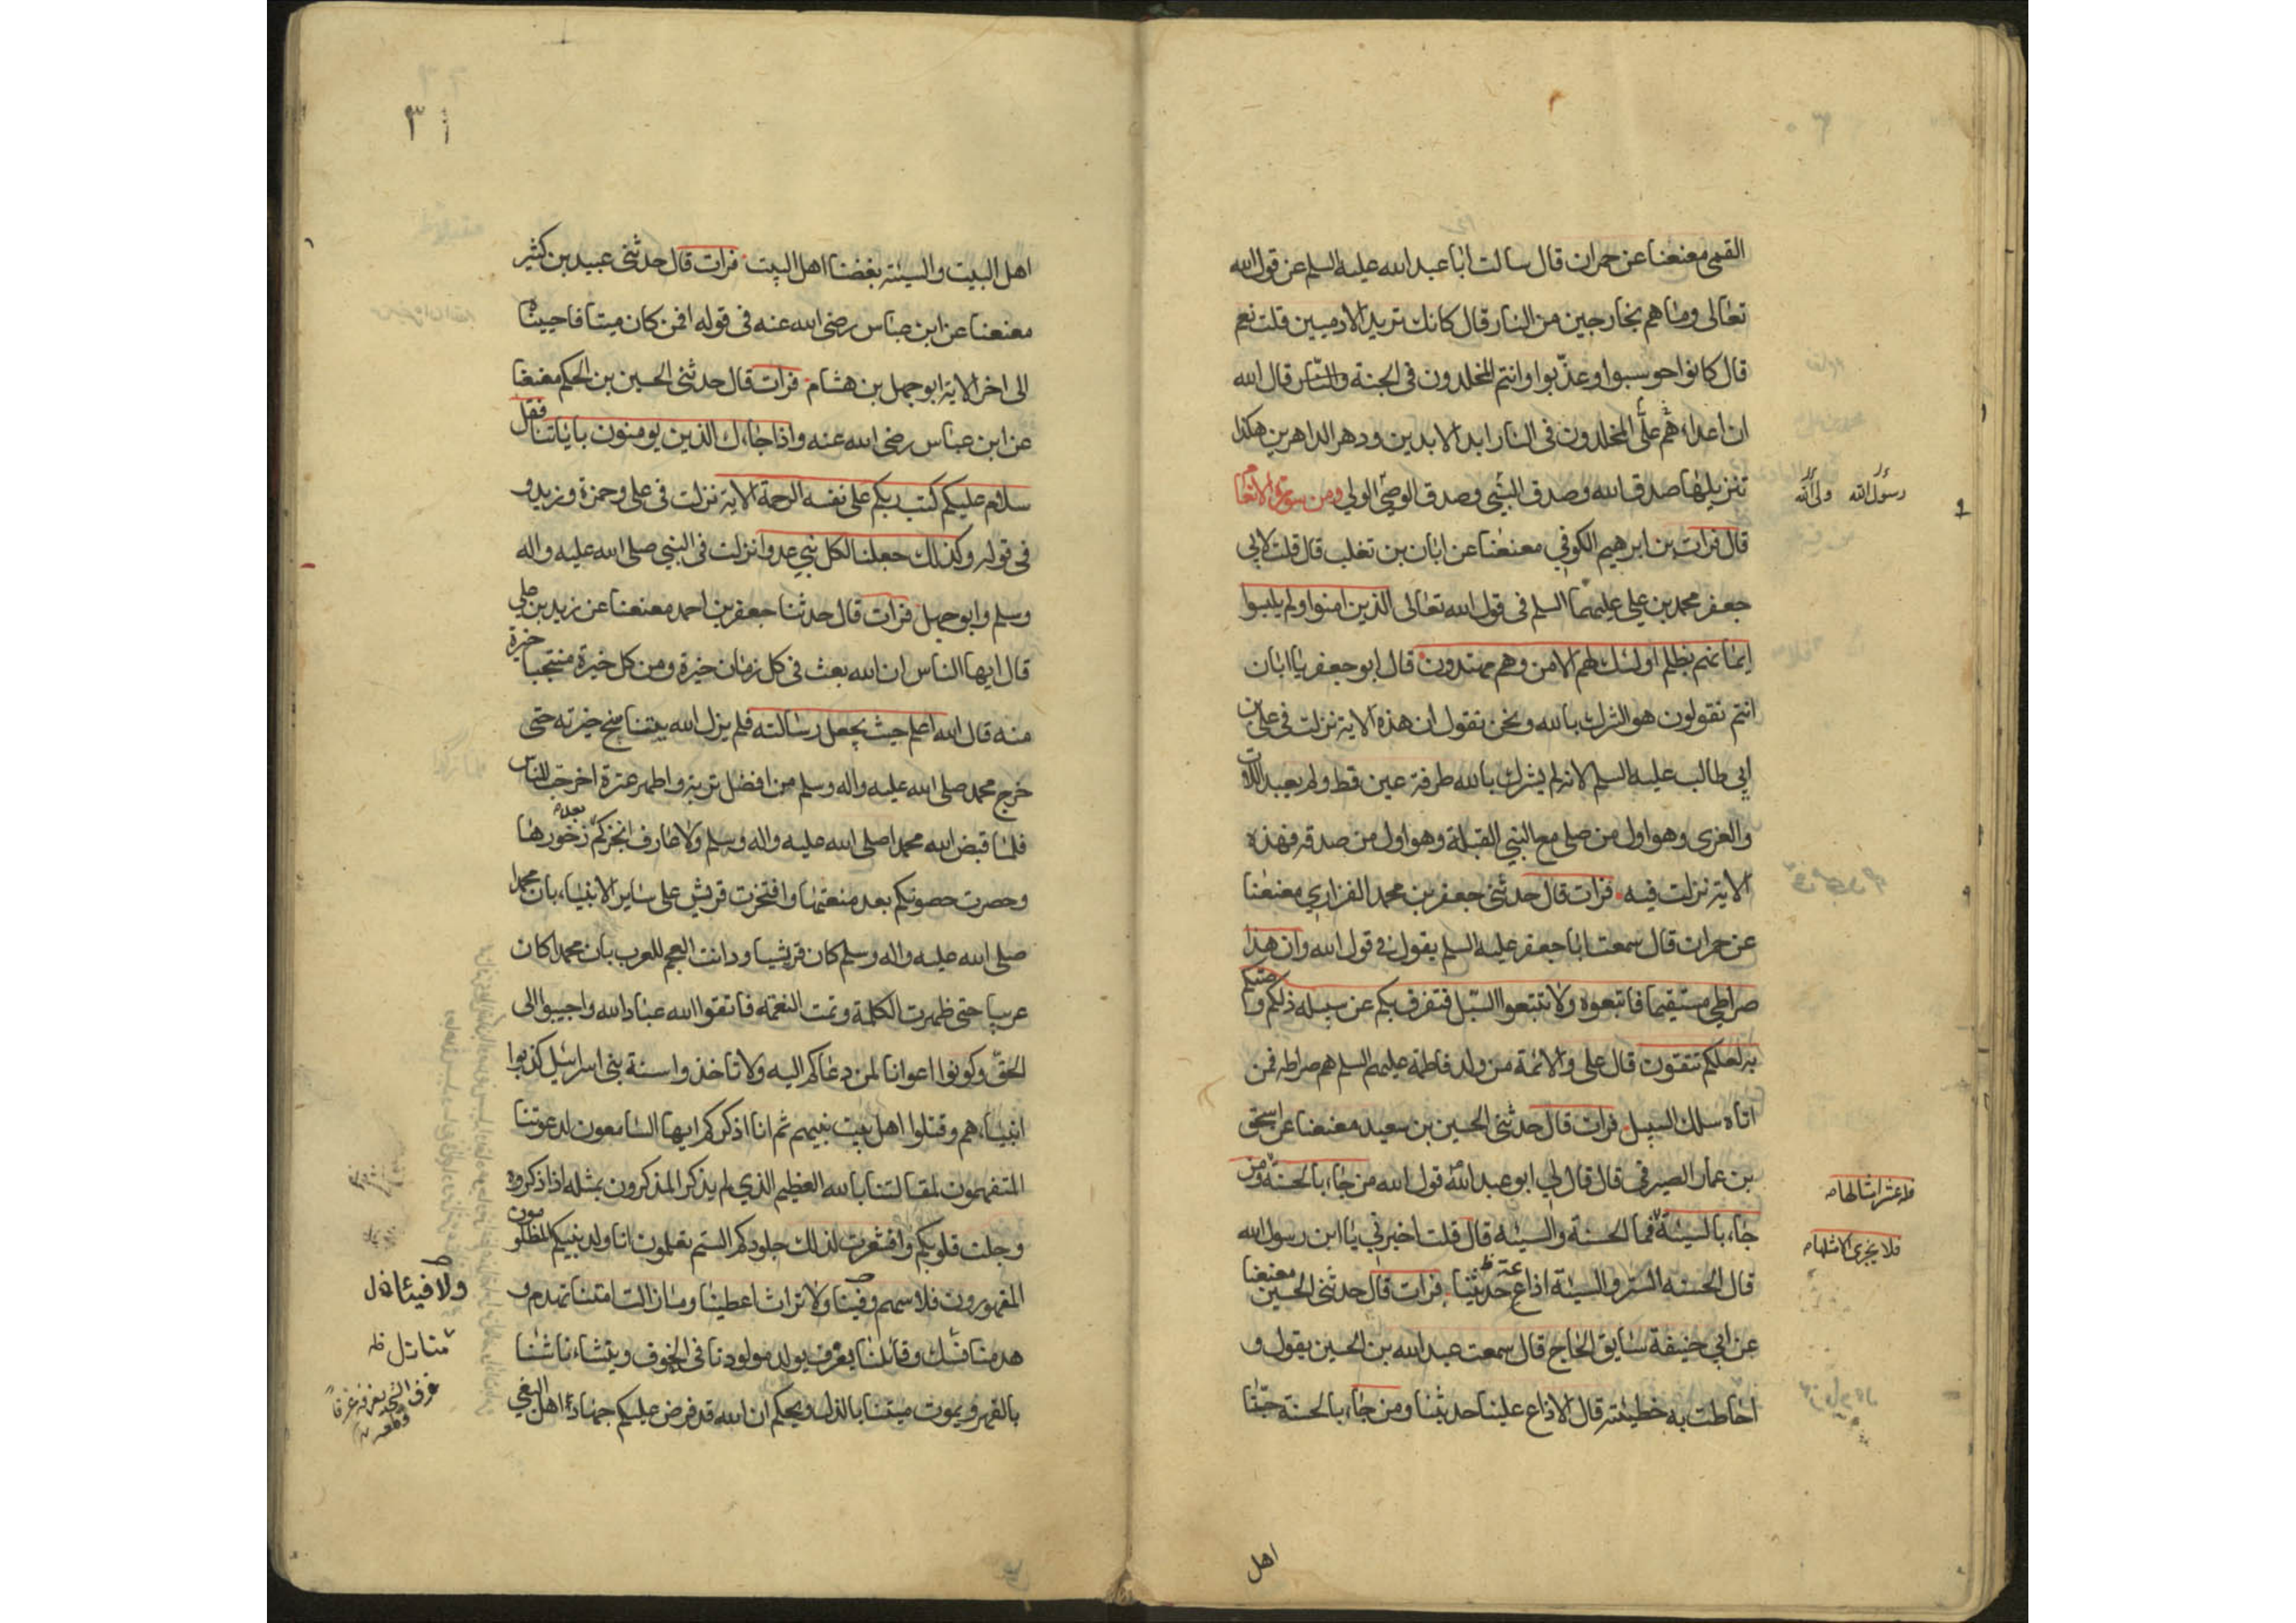 القمي معنعنا عن حمران قال سالت ابا عبد الله عليه السلم عن قول الله
تعالى وما هم بخارجين من النار قال كانك تريد الادميين قلت نعم
قال كانوا حوسبوا وعذّبوا وانتم المخلدون في الجنة والنّاس قال الله
ان اعداء علّى هم المخلدون في النار ابد الابدين ودهر الداهرين هكذا
تنزيلها صدق الله وصدق النبّي وصدق الوصّي الولي ومن سورة الانعام
رسول الله ولى الله
قال فرات بن ابرهيم الكوفي معنعنا عن ابان بن تغلب قال قلت لابي
جعفر محمد بن علي عليهما السلم في قول الله تعالى الذين امنوا ولم يلبسوا
ايمانهم بظلم اولئك لهم الامن وهم مهتدون قال ابو جعفر يا ابان
انتم تقولون هو الشرك بالله ونحن نقول ان هذه الاية نزلت في علي بن
ابي طالب عليه السلم لانه لم يشرك بالله طرفة عين قط ولم يعبد اللات
والعزى وهو اول من صلى مع النبي القبلة وهو اول من صدقه فهذه
الاية نزلت فيه فرات قال حدثنى جعفر بن محمد الفزاري معنعنا
عن حمران قال سمعت ابا جعفر عليه السلم يقول في قول الله وان هذا
صراطي مستقيما فاتبعوه ولا تتبعوا السّبل فتفرق بكم عن سبيله ذلكم وصّيكم
به لعلكم تتقون قال علي والائمة من ولد فاطمة عليهم السلم هم صراطه فمن
اتاه سلك السبيل فرات قال حدثنى الحسين بن سعيد معنعنا عن اسحق
بن عمار الصيرفي قال قال لي ابو عبد الله قول الله من جاء بالحسنة ومن
فله عشر امثالها
جاء بالسيئة فما الحسنة والسيئة قال قلت اخبرني يا ابن رسول الله
فلا يجزى الا مثلها
قال الحسنه الستر والسيئة اذاع حديثنا فرات قال حدثنى الحسين معنعنا
عن ابي حنيفة سايق الحاج قال سمعت عبد الله بن الحسين يقول و
احاطت به خطيئته قال الاذاع علينا حديثنا ومن جاء بالحسنة حبّنا
اهل
٣١
اهل البيت والسيئة بغضنا اهل البيت فرات قال حدثنى عبيد بن كثير
معنعنا عن ابن عباس رضى الله عنه في قوله افمن كان ميتا فاحييناه
الى اخر الاية ابو جهل بن هشام فرات قال حدثنى الحسين بن الحكم معنعنا
عن ابن عباس رضى الله عنه واذا جاءك الذين يومنون باياتنا فقل
سلام عليكم كتب ربكم على نفسه الرحمة الاية نزلت في علي وحمزة وزيد و
في قوله وكذلك جعلنا لكل نبي عدوا نزلت في النبي صلى الله عليه واله
وسلم وابو جهل فرات قال حدثنا جعفر بن احمد معنعنا عن زيد بن علي
قال ايها الناس ان الله بعث في كل زمان خيرة ومن كل خيرة منتجبا خيرة
منه قال الله اعلم حيث يجعل رسالته فلم يزل الله يتناسخ خيرته حتى
خرج محمد صلى الله عليه واله وسلم من افضل تربة واطهر عترة اخرجت للناس
فلما قبض الله محمدا صلى الله عليه واله وسلم ولا عارف انجزكم بعد زخورها
وحصرت حصونكم بعد منعتها وافتخرت قريش على ساير الانبياء بان محمدا
صلى الله عليه واله وسلم كان قرشيا ودانت العجم للعرب بان محمدا كان
عربيا حتى ظهرت الكلمة وتمت النعمة فاتقوا الله عباد الله واجيبوا الى
الحقّ وكونوا اعوانا لمن دعاكم اليه ولا تاخذوا سنة بنى اسرائيل كذبوا
انبياءهم وقتلوا اهل بيت نبيهم ثم انا اذكركم ايها السامعون لدعوتنا
المتفهمون لمقالتنا بالله العظيم الذي لم يذكر المذكرون بمثله اذا ذكروه
وجلت قلوبكم واقشعرت لذلك جلودكم الستم تعلمون انا ولد نبيكم المظلومون
المقهورون فلا سهم وفينا ولا تراث اعطينا وما زالت امتنا تهدم و
ولا فيئا
هدمنا وقائلنا يعرف يولد مولودنا في الخوف وينشاء ناشئنا
بالقهر ويموت ميتنا بالذل ويحكم ان الله قد فرض عليكم جهاد اهل البغي